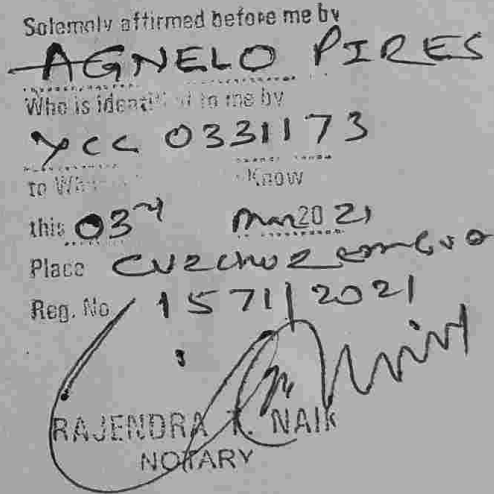 Solemnly affirmed before me by
AGNELO PIRES
Who is identified to me by
YCC 0331173
to Whom Know
this 03rd Mar 2021
Place Curchorem Goa
Reg. No. 1571/2021
RAJENDRA T. NAIK
NOTARY